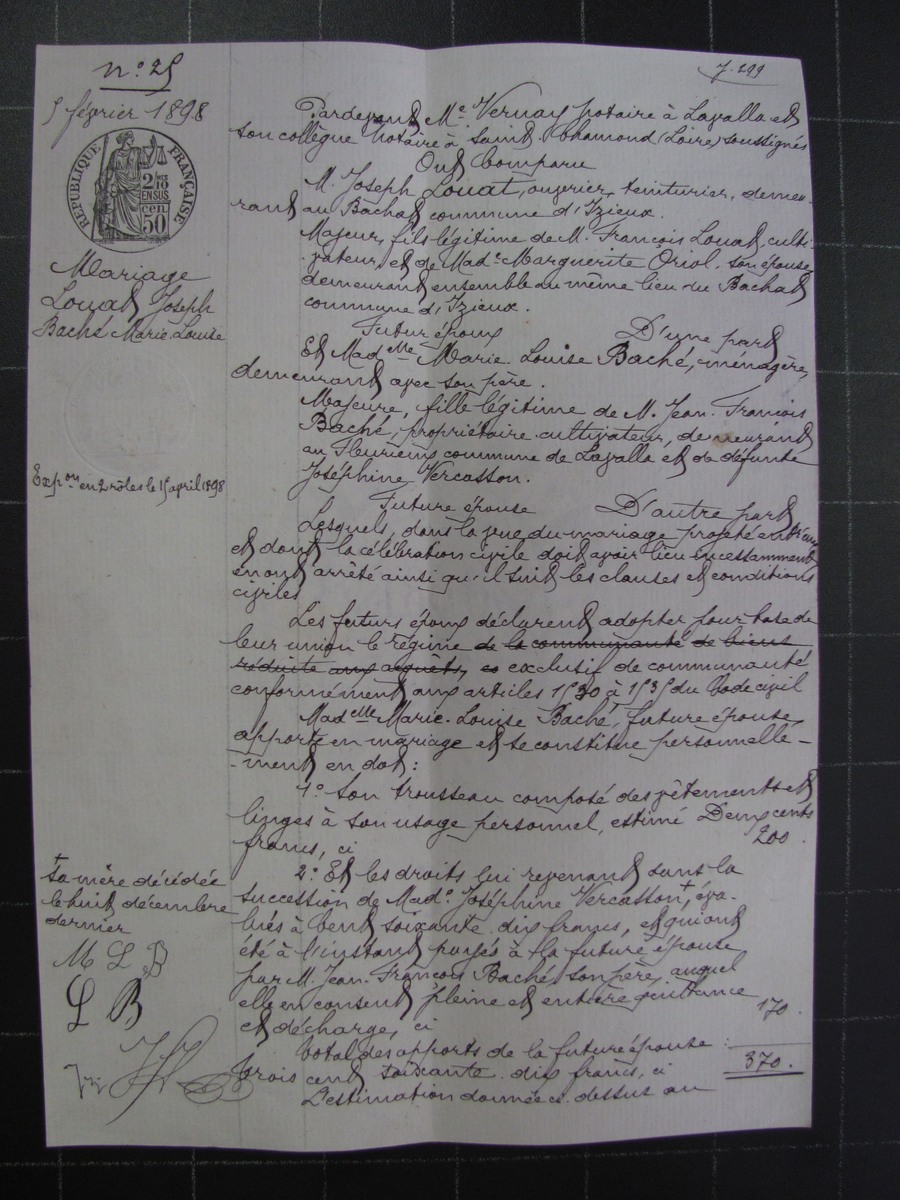 n° 25
7.299
5 février 1898
RÉPUBLIQUE FRANÇAISE
2/10
EN SUS
50 cen.
Mariage
Louat Joseph
Baché Marie Louise
Expon en 2 rôles le 15 april 1898
Pardevant Me Vernay notaire à Lavalla et
son collègue notaire à Saint Chamond (Loire) soussignés
Ont Comparu
M. Joseph Louat, ouvrier teinturier, demeu-
rant au Bachat commune d'Izieux.
Majeur, fils légitime de M. François Louat, culti-
vateur, et de Made Marguerite Oriol, son épouse
demeurant ensemble au même lieu du Bachat
commune d'Izieux.
Futur époux D'une part
Et Madelle Marie Louise Baché, ménagère,
demeurant avec son père.
Majeure, fille légitime de M. Jean François
Baché, propriétaire cultivateur, demeurant
au Fleurieux commune de Lavalla et de défunte
Joséphine Vercasson.
Future épouse D'autre part
Lesquels, dans la vue du mariage projeté entr'eux
et dont la célébration civile doit avoir lieu incessamment
en ont arrêté ainsi qu'il suit les clauses et conditions
civiles
Les futurs époux déclarent adopter pour base de
leur union le régime de la communauté de biens
réduite aux acquêts, exclusif de communauté
conformément aux articles 1530 à 1535 du Code civil
Madelle Marie Louise Baché, future épouse,
apporte en mariage et se constitue personnelle-
-ment en dot :
1° Son trousseau composé des vêtements et
linges à son usage personnel, estimé Deux cents
francs, ci 200
2° Et les droits lui revenant dans la
succession de Made Joséphine Vercasson+, éva-
lués à Cent soixante dix francs, et qui ont
été à l'instant payés à la future épouse
par M. Jean François Baché, son père, auquel
elle en consent pleine et entière quittance
et décharge, ci 170.
Total des apports de la future épouse :
trois cent soixante dix francs, ci 370.
L'estimation donnée ci dessus au
+
sa mère décédée
le huit décembre
dernier
M L B
L B